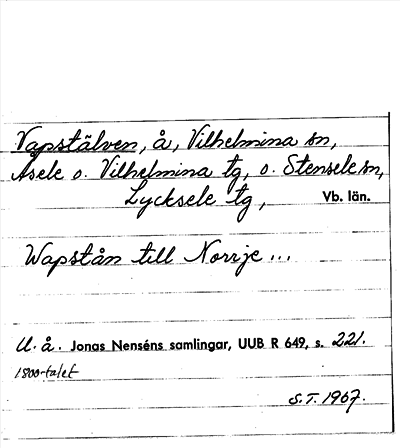 Vapstälven, å, Vilhelmina sn,
Åsele o. Vilhelmina tg, o. Stensele sn,
Lycksele tg, Vb. län.
Wapstån till Norrje...
U. å. Jonas Nenséns samlingar, UUB R 649, s. 221.
1800-talet
S.T. 1967.